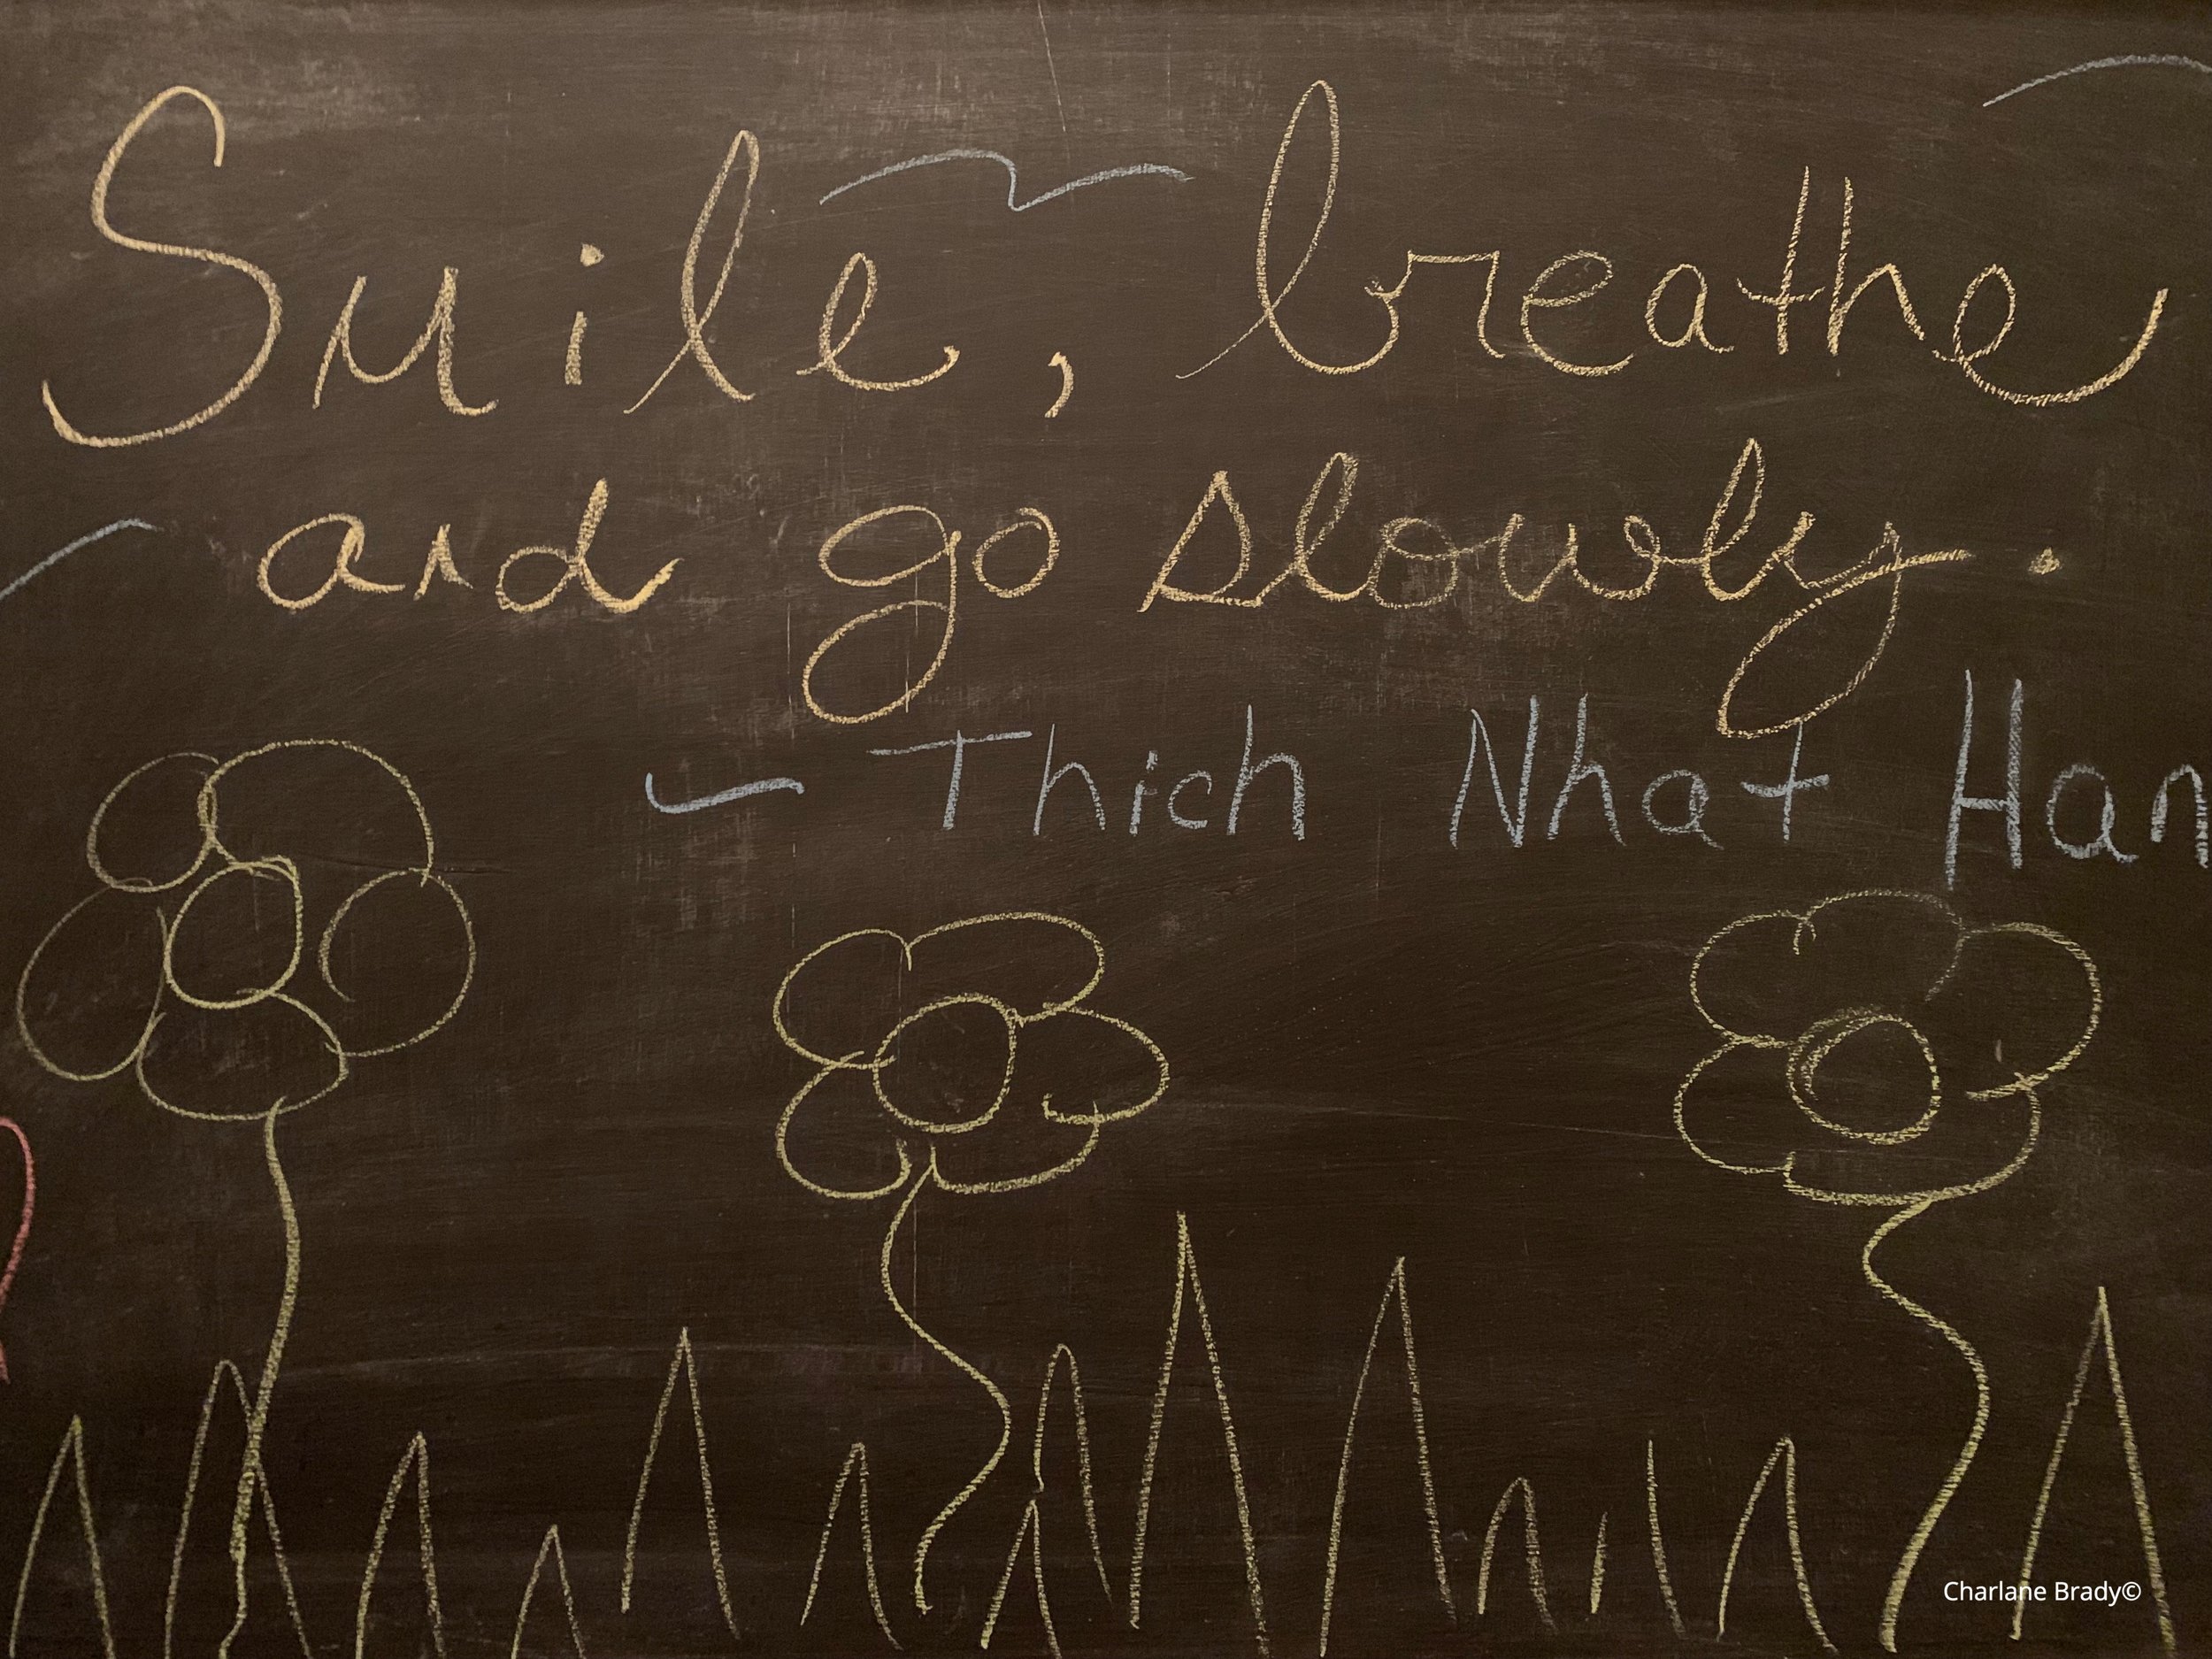 Smile, breathe
and go slowly.
- Thich Nhat Han
Charlane Brady©